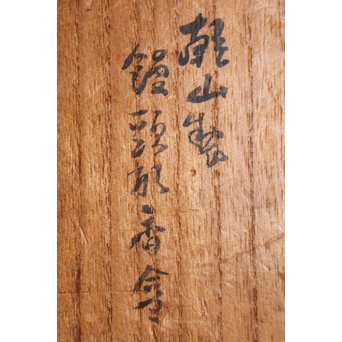 乾山製
饅頭形香合